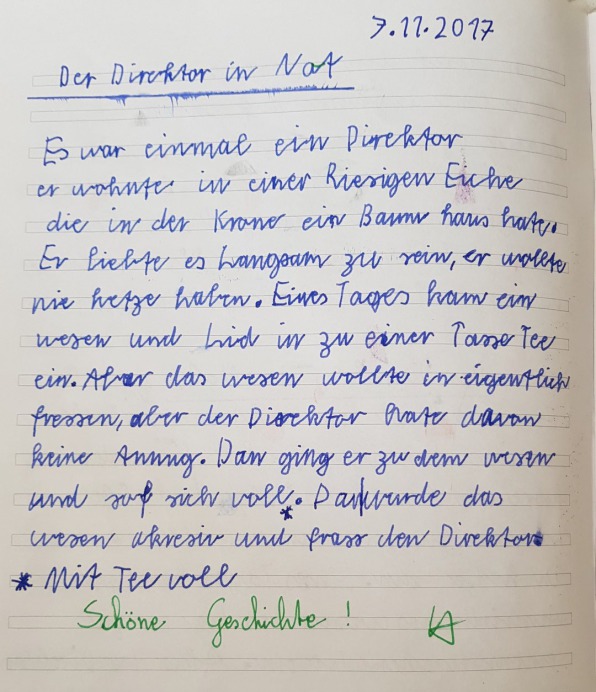 7.11.2017
Der Direktor in Not
Es war einmal ein Direktor
er wohnte in einer Riesigen Eiche
die in der Krone ein Baum haus hate.
Er liebte es Langsam zu sein, er wollte
nie hetze haben. Eines Tages kam ein
wesen und Lid in zu einer Tasse Tee
ein. Aber das wesen wollte in eigentlich
fressen, aber der Direktor hate davon
keine Annung. Dan ging er zu dem wesen
und sof sich voll.* Dan wurde das
wesen akresiv und frass den Direktor.
* Mit Tee voll
Schöne Geschichte!